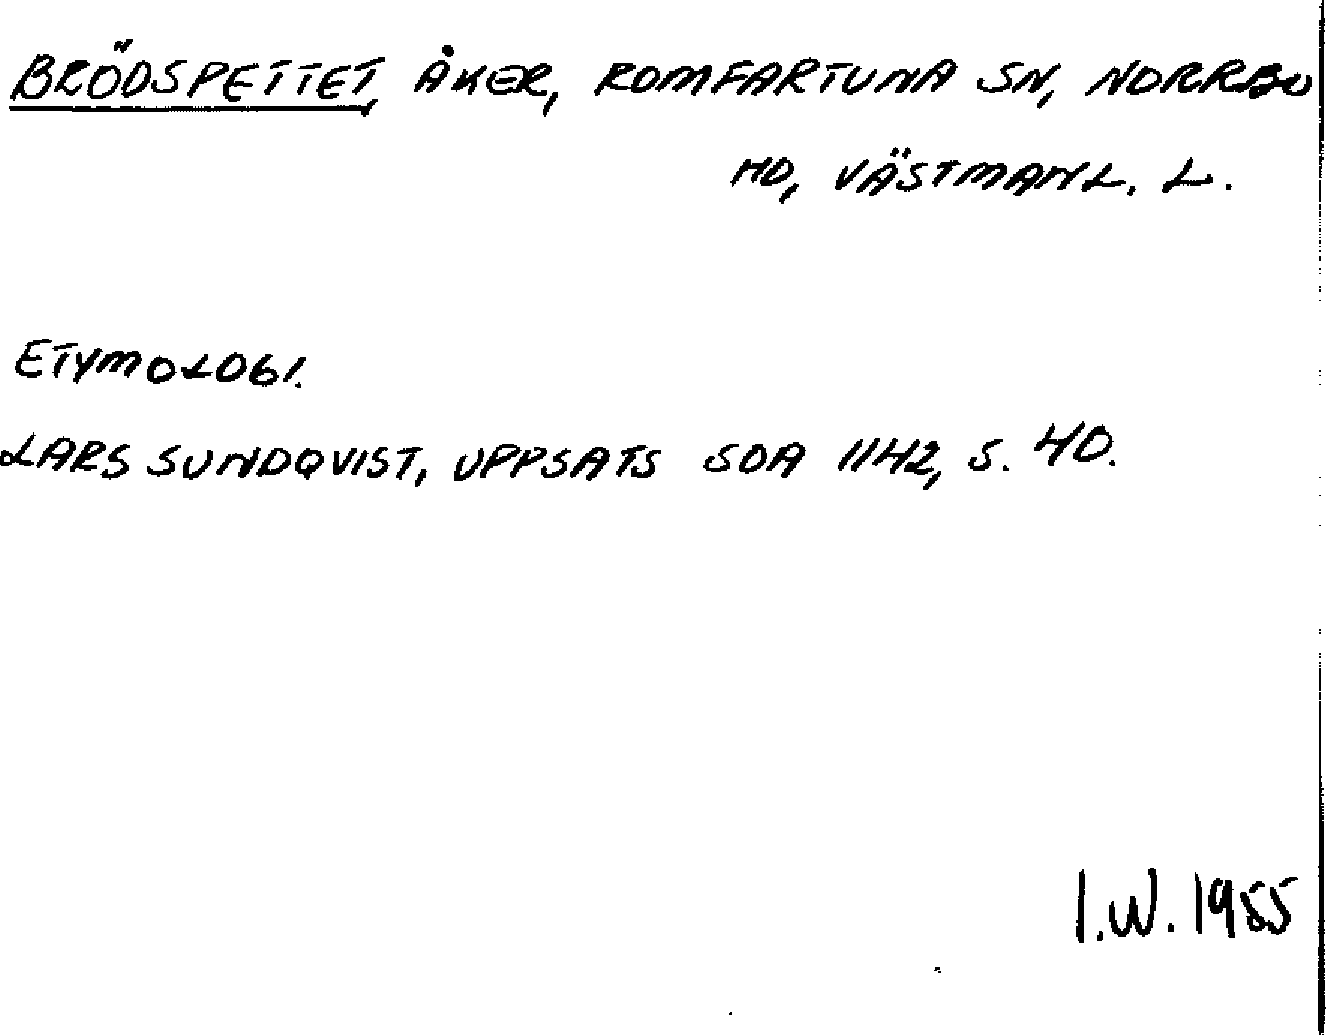 BRÖDSPETTET, ÅKER, ROMFARTUNA SN, NORRBO
HD, VÄSTMANL. L.
ETYMOLOGI.
LARS SUNDQVIST, UPPSATS SOA 1142, S. 40.
I.W. 1955